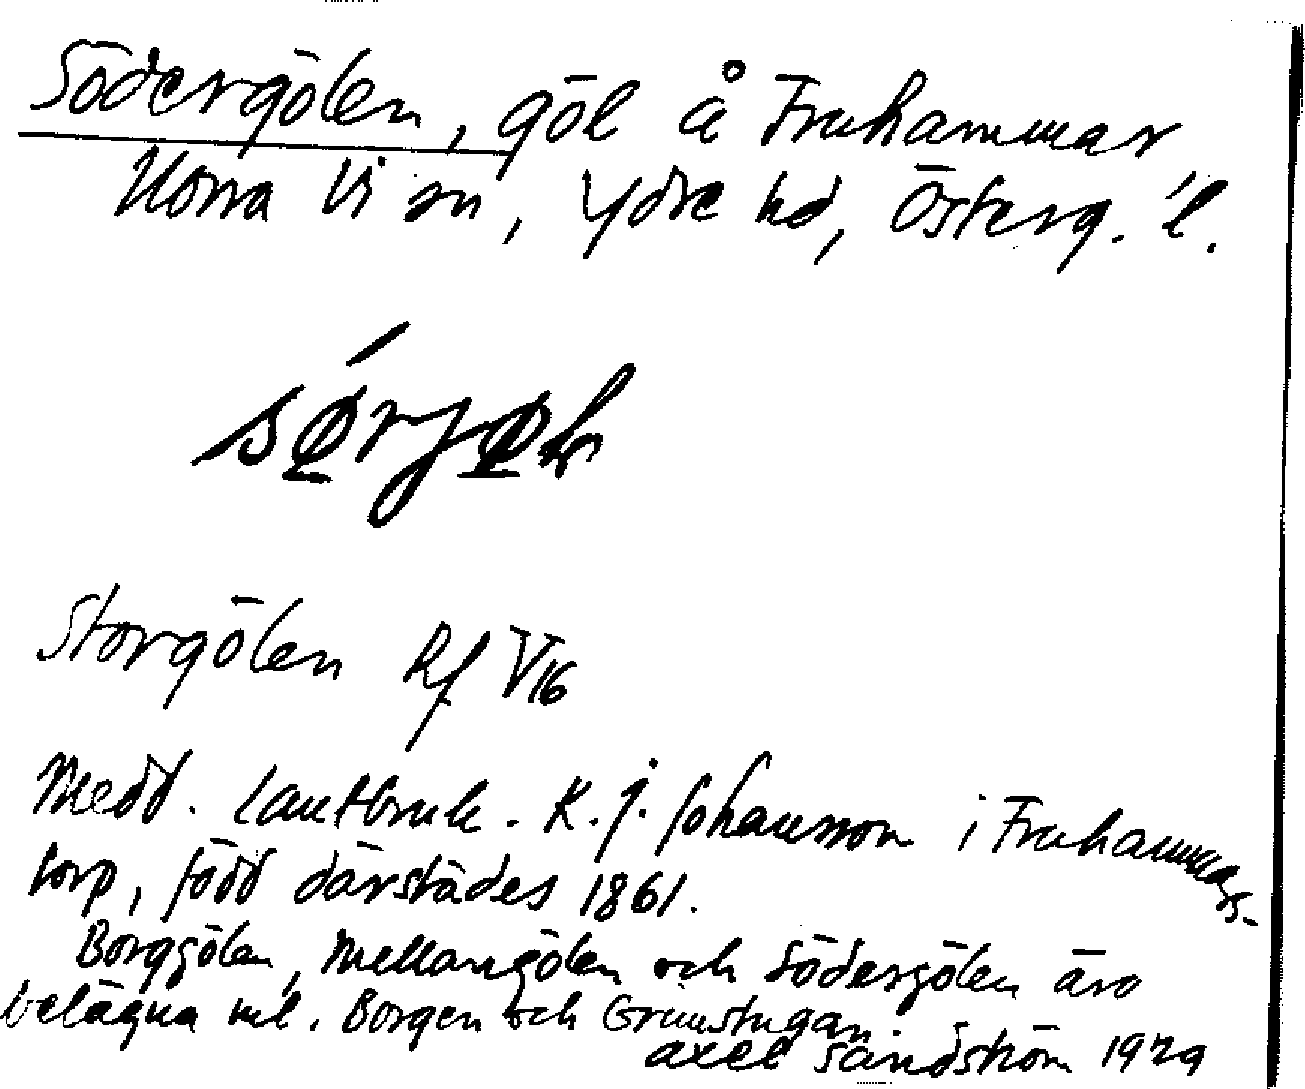 Södergölen, göl å Fruhammar
Norra Vi sn, Ydre hd, Österg. l.
Storgölen Rf V16
Medd. Lantbruk. K. J. Johansson i Fruhammars-
torp, född därstädes 1861.
Borggölen, Mellangölen och Södergölen äro
belägna ml. Borgen och Grimstugan.
Axel Sandström 1929